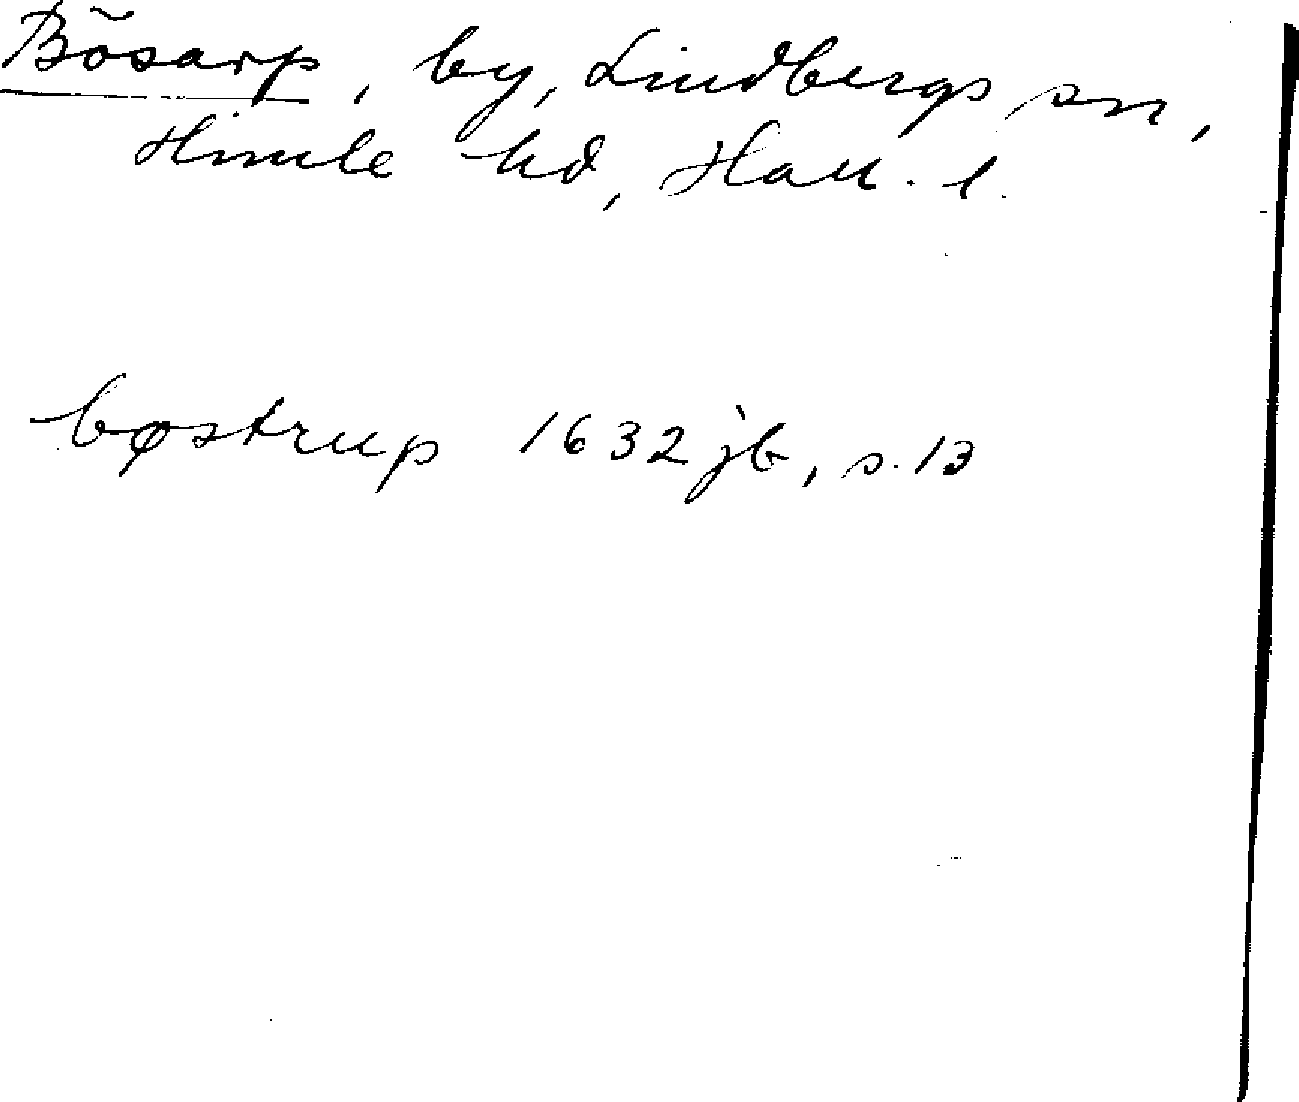 Bösarp, by, Lindbergs sn,
Himle hd, Hall. l.
bøstrup 1632 jb, s. 13